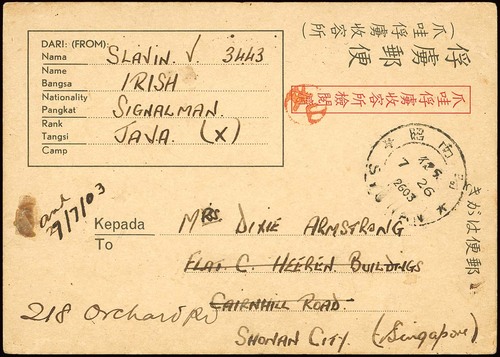 DARI: (FROM)
Nama
Name
SLAVIN. V. 3443
Bangsa
Nationality
IRISH
Pangkat
Rank
SIGNALMAN.
Tangsi
Camp
JAVA. (X)
俘虜郵便
(爪哇俘虜收容所)
爪哇俘虜收容所檢閲
昭南
7
26
2603
きがは便郵
9/7/03
Kepada
To
MRS. DIXIE ARMSTRONG
FLAT C. HEEREN BUILDINGS
CAIRNHILL ROAD.
218 Orchard Rd
SHONAN CITY. (Singapore)